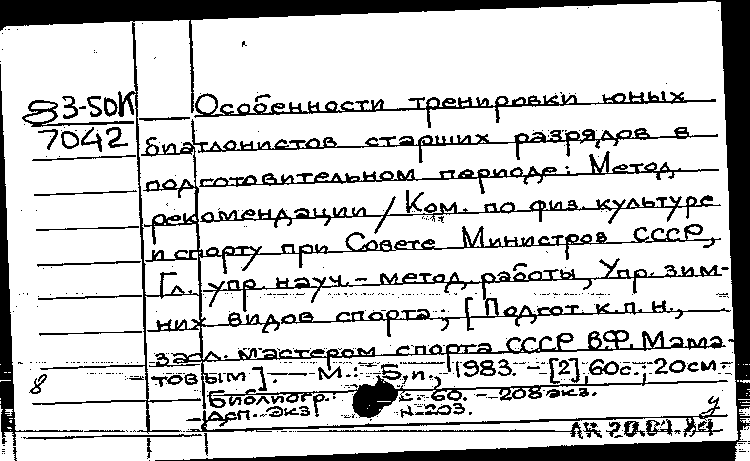 83-50К
7042
Особенности тренировки юных
биатлонистов старших разрядов в
подготовительном периоде: Метод.
рекомендации / Ком. по физ. культуре
и спорту при Совете Министров СССР,
Гл. упр. науч.-метод. работы, Упр. зим-
них видов спорта; [Подгот. к.п.н.,
засл. мастером спорта СССР В.Ф. Мама-
товым]. - М.: Б.и., 1983. - [2], 60с.; 20см.
8
Библиогр.: с. 60. - 208 экз.
Деп. экз. N-203.
у